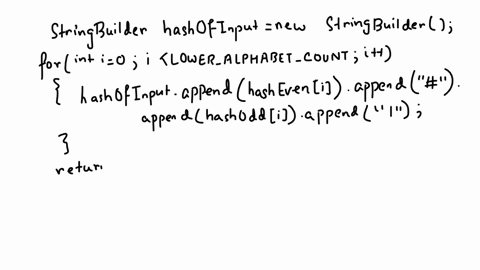 StringBuilder hashOfInput = new StringBuilder();
for(int i=0 ; i <LOWER_ALPHABET_COUNT ; i++)
{ hashOfInput.append(hashEven[i]).append("#").
append(hashOdd[i]).append("|");
}
retur